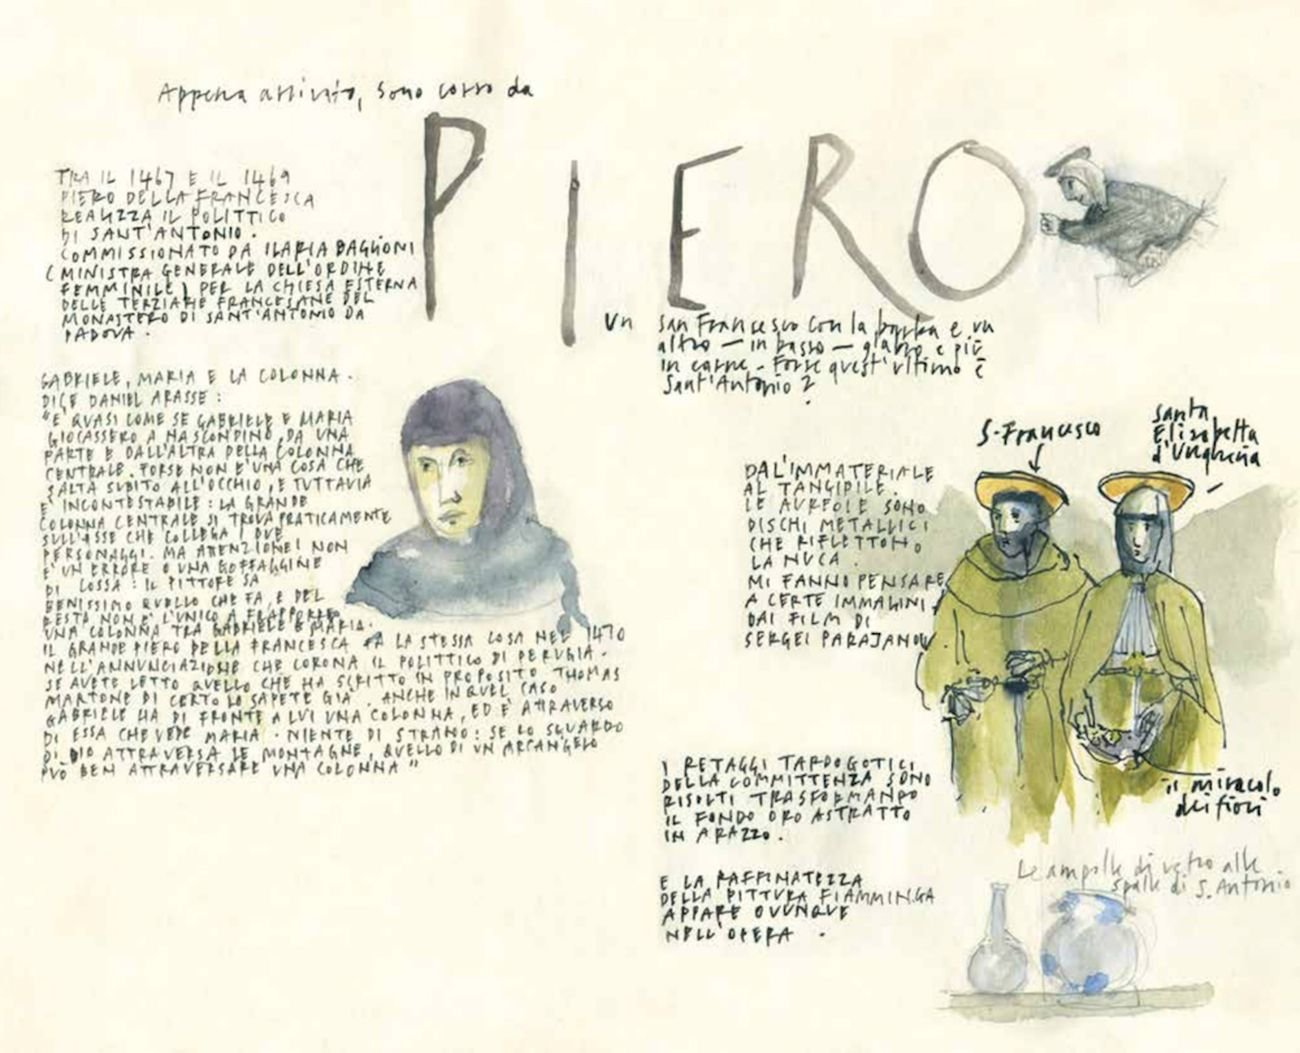 Appena arrivato, sono corso da
PIERO
TRA IL 1467 E IL 1469
PIERO DELLA FRANCESCA
REALIZZA IL POLITTICO
DI SANT'ANTONIO.
COMMISSIONATO DA ILARIA BAGLIONI
(MINISTRA GENERALE DELL'ORDINE
FEMMINILE) PER LA CHIESA ESTERNA
DELLE TERZIARIE FRANCESCANE DEL
MONASTERO DI SANT'ANTONIO DA
PADOVA.
GABRIELE, MARIA E LA COLONNA.
DICE DANIEL ARASSE:
"E' QUASI COME SE GABRIELE E MARIA
GIOCASSERO A NASCONDINO, DA UNA
PARTE E DALL'ALTRA DELLA COLONNA
CENTRALE. FORSE NON E' UNA COSA CHE
SALTA SUBITO ALL'OCCHIO, E TUTTAVIA
E' INCONTESTABILE: LA GRANDE
COLONNA CENTRALE SI TROVA PRATICAMENTE
SULL'ASSE CHE COLLEGA I DUE
PERSONAGGI. MA ATTENZIONE! NON
E' UN ERRORE O UNA GOFFAGGINE
DI COSSA: IL PITTORE SA
BENISSIMO QUELLO CHE FA, E DEL
RESTO NON E' L'UNICO A FRAPPORRE
UNA COLONNA TRA GABRIELE E MARIA.
IL GRANDE PIERO DELLA FRANCESCA FA LA STESSA COSA NEL 1470
NELL'ANNUNCIAZIONE CHE CORONA IL POLITTICO DI PERUGIA.
SE AVETE LETTO QUELLO CHE HA SCRITTO IN PROPOSITO THOMAS
MARTONE DI CERTO LO SAPETE GIA'. ANCHE IN QUEL CASO
GABRIELE HA DI FRONTE A LUI UNA COLONNA, ED E' ATTRAVERSO
DI ESSA CHE VEDE MARIA. NIENTE DI STRANO: SE LO SGUARDO
DI DIO ATTRAVERSA LE MONTAGNE, QUELLO DI UN ARCANGELO
PUÒ BEN ATTRAVERSARE UNA COLONNA"
Un San Francesco con la barba e un
altro – in basso – glabro e più
in carne. Forse quest'ultimo è
Sant'Antonio?
S. Francesco
Santa
Elisabetta
d'Ungheria
DAL'IMMATERIALE
AL TANGIBILE.
LE AUREOLE SONO
DISCHI METALLICI
CHE RIFLETTONO
LA NUCA.
MI FANNO PENSARE
A CERTE IMMAGINI
DAI FILM DI
SERGEI PARAJANOV.
il miracolo
dei fiori
I RETAGGI TARDOGOTICI
DELLA COMMITTENZA SONO
RISOLTI TRASFORMANDO
IL FONDO ORO ASTRATTO
IN ARAZZO.
E LA RAFFINATEZZA
DELLA PITTURA FIAMMINGA
APPARE OVUNQUE
NELL'OPERA.
Le ampolle di vetro alle
spalle di S. Antonio